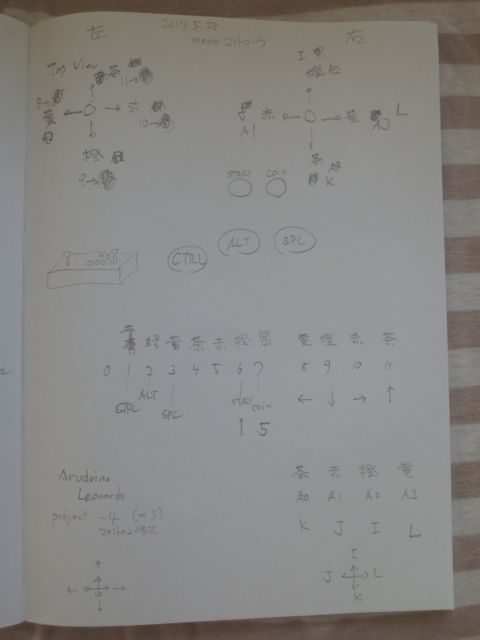 左 2017.5.28 右
mame コントローラ
Top View
茶
11→
I
橙
8→
黄
赤
10→
橙
9→
J 赤
A1
黄 L
A3
茶
K
start coin
CTRL ALT SPC
青 緑 黄 茶 赤 橙 茶 黄 橙 赤 茶
0 1 2 3 4 5 6 7 8 9 10 11
CTRL ALT SPC start coin ← ↓ → ↑
1 5
Arudino
Leonardo
project -4 (=3)
茶 赤 橙 黄
A0 A1 A2 A3
K J I L
I
J L
K